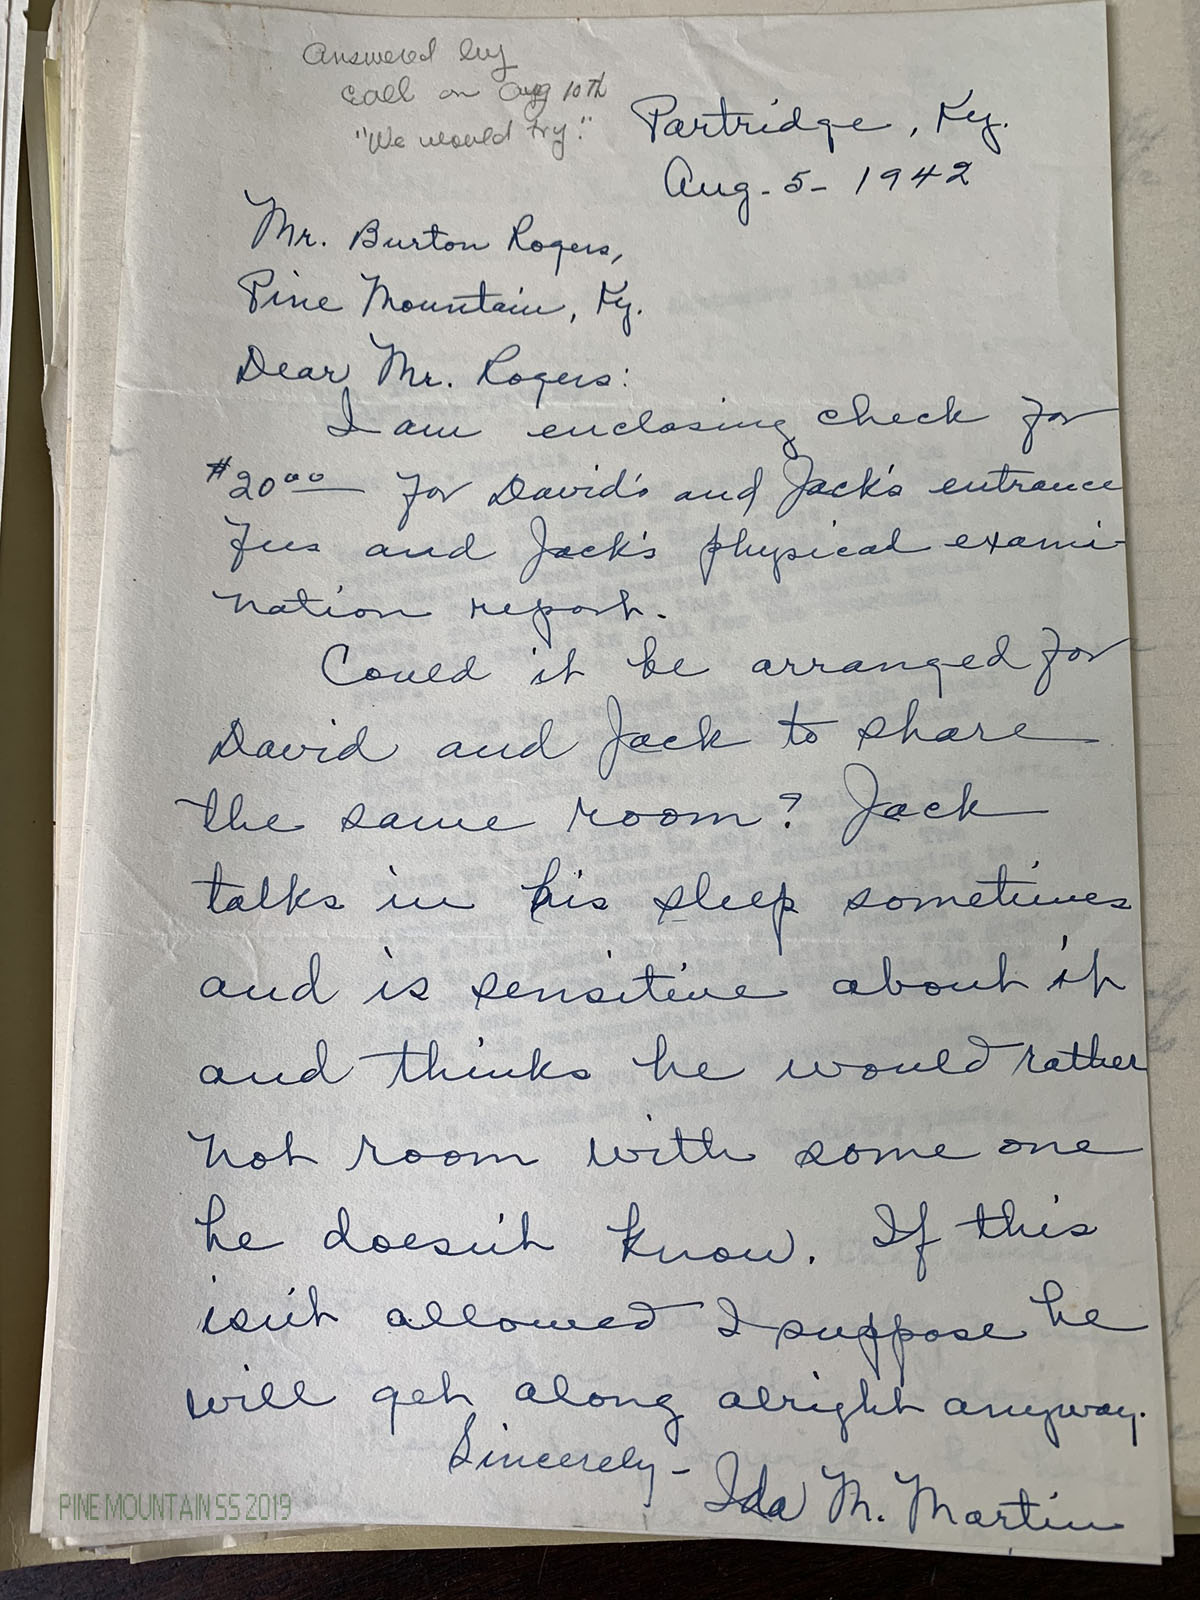 Answered by
call on Aug 10th
"We would try."
Partridge, Ky.
Aug. 5 - 1942
Mr. Burton Rogers,
Pine Mountain, Ky.
Dear Mr. Rogers:
I am enclosing check for
$20.00 for David's and Jack's entrance
fees and Jack's physical exami-
nation report.
Could it be arranged for
David and Jack to share
the same room? Jack
talks in his sleep sometimes
and is sensitive about it
and thinks he would rather
not room with some one
he doesn't know. If this
isn't allowed I suppose he
will get along alright anyway.
Sincerely -
Ida M. Martin
PINE MOUNTAIN SS 2019